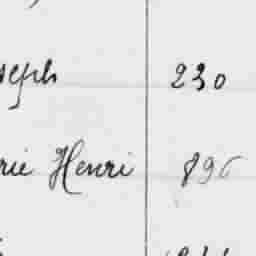 seph 230
rie Henri 896